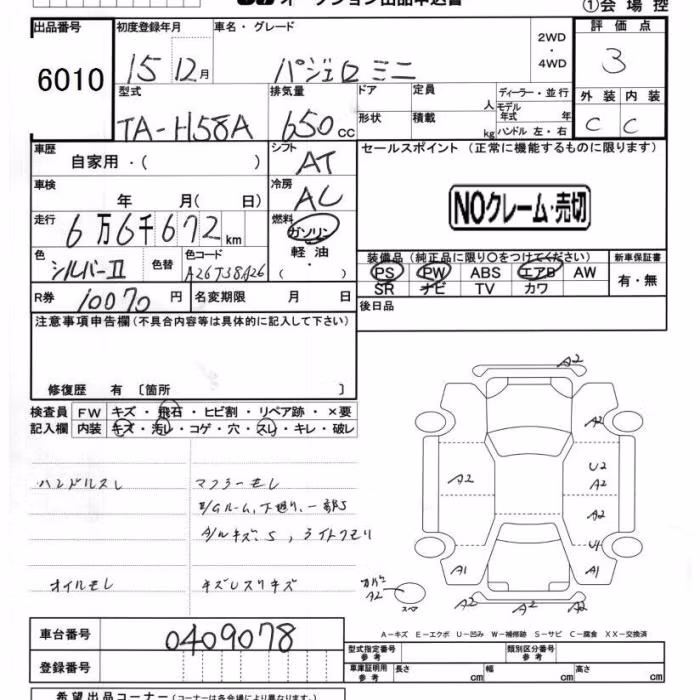 オークション出品申込書
①会場控
出品番号 初度登録年月 車名・グレード 2WD 評価点
6010 15 12月 パジェロミニ ・4WD 3
型式 排気量 ドア 定員 人 ディーラー・並行 外装 内装
TA-H58A 650cc 形状 積載 kg モデル年式 年 C C
ハンドル 左・右
車歴 自家用・( ) シフト AT セールスポイント (正常に機能するものに限ります)
車検 年 月( 日) 冷房 AC
NOクレーム・売切
走行 6万6千672km 燃料 ガソリン
軽油
・( )
色 シルバーII 色替 色コード A26T38A26
装備品 (純正品に限り○をつけてください) 新車保証書
PS PW ABS エアB AW 有・無
SR ナビ TV カワ
R券 10070円 名変期限 月 日 後日品
注意事項申告欄(不具合内容等は具体的に記入して下さい)
修復歴 有 〔箇所 〕
検査員 FW キズ・飛石・ヒビ割・リペア跡・×要
記入欄 内装 キズ・汚レ・コゲ・穴・スレ・キレ・破レ
ハンドルスレ マフラーモレ
E/Gルーム、下廻り、一部S
A/Wキズ、S、ライトクモリ
オイルモレ キズレスリキズ
A2
A2
U2
A2 A2
A2
U1
A1 A1
カバー
A2
スペア
A2 A2 A2
A-キズ E-エクボ U-凹み W-補修跡 S-サビ C-腐食 XX-交換済
車台番号 0409078
型式指定番号 参考 類別区分番号 参考
登録番号 車庫証明用 参考 長さ cm 幅 cm 高さ cm
希望出品コーナー (コーナーは各会場により異なります。)